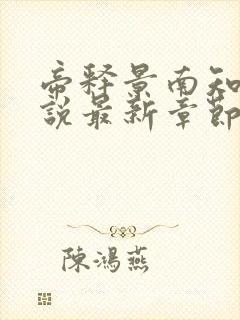 帝释景南知
說最新章節
陳鴻燕